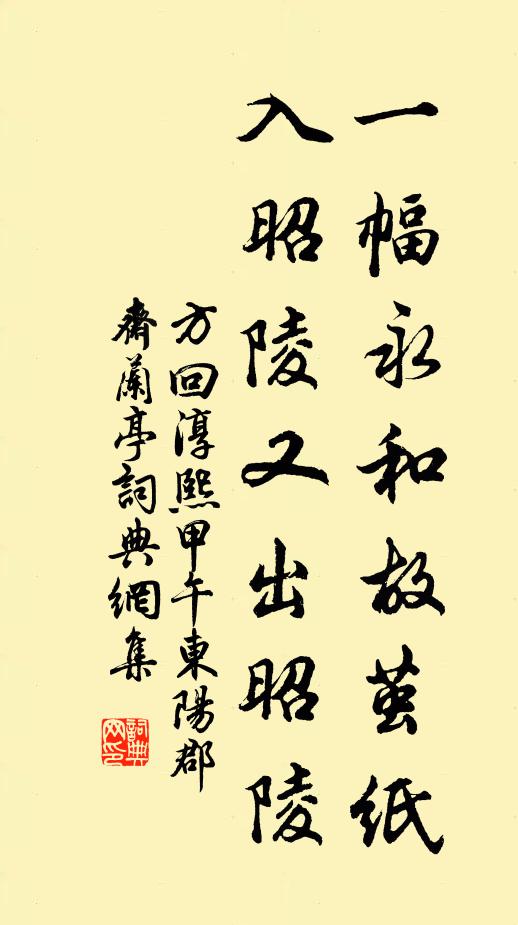 一幅永和故茧紙
入昭陵又出昭陵
方回淳熙甲午東陽郡
齋蘭亭詞典網集
詞典網印